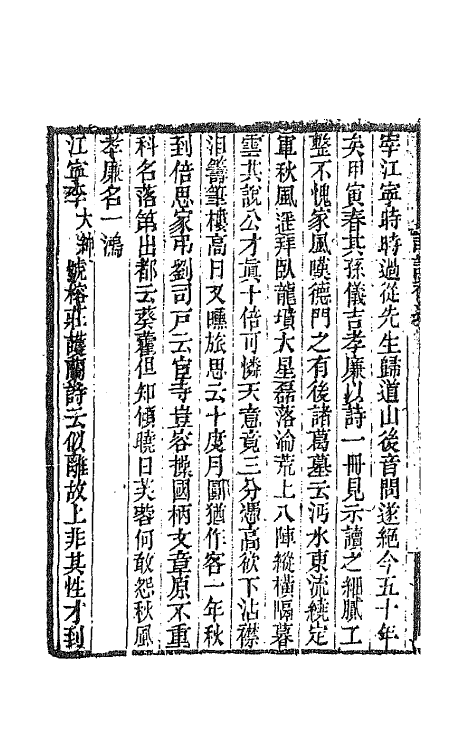 宰江寧時時過從先生歸道山後音問遂絕今五十年
矣甲寅春其孫儀吉孝廉以詩一冊見示讀之細膩工
整不愧家風嘆德門之有後諸葛墓云沔水東流繞定
軍秋風遥拜臥龍墳大星磊落淪荒上八陣縱橫鬲暮
雲其說公才眞十倍可憐天意竟三分憑高欲下沾襟
淚籌筆樓高日又曛旅思云十度月圓猶作客一年秋
到倍思家弔劉司戸云宦寺豈容操國柄文章原不重
科名落第出都云葵藿但知傾曉日芙蓉何敢怨秋風
孝廉名一鴻
江寧李大紳號榕莊護蘭詩云似離故土非其性才到